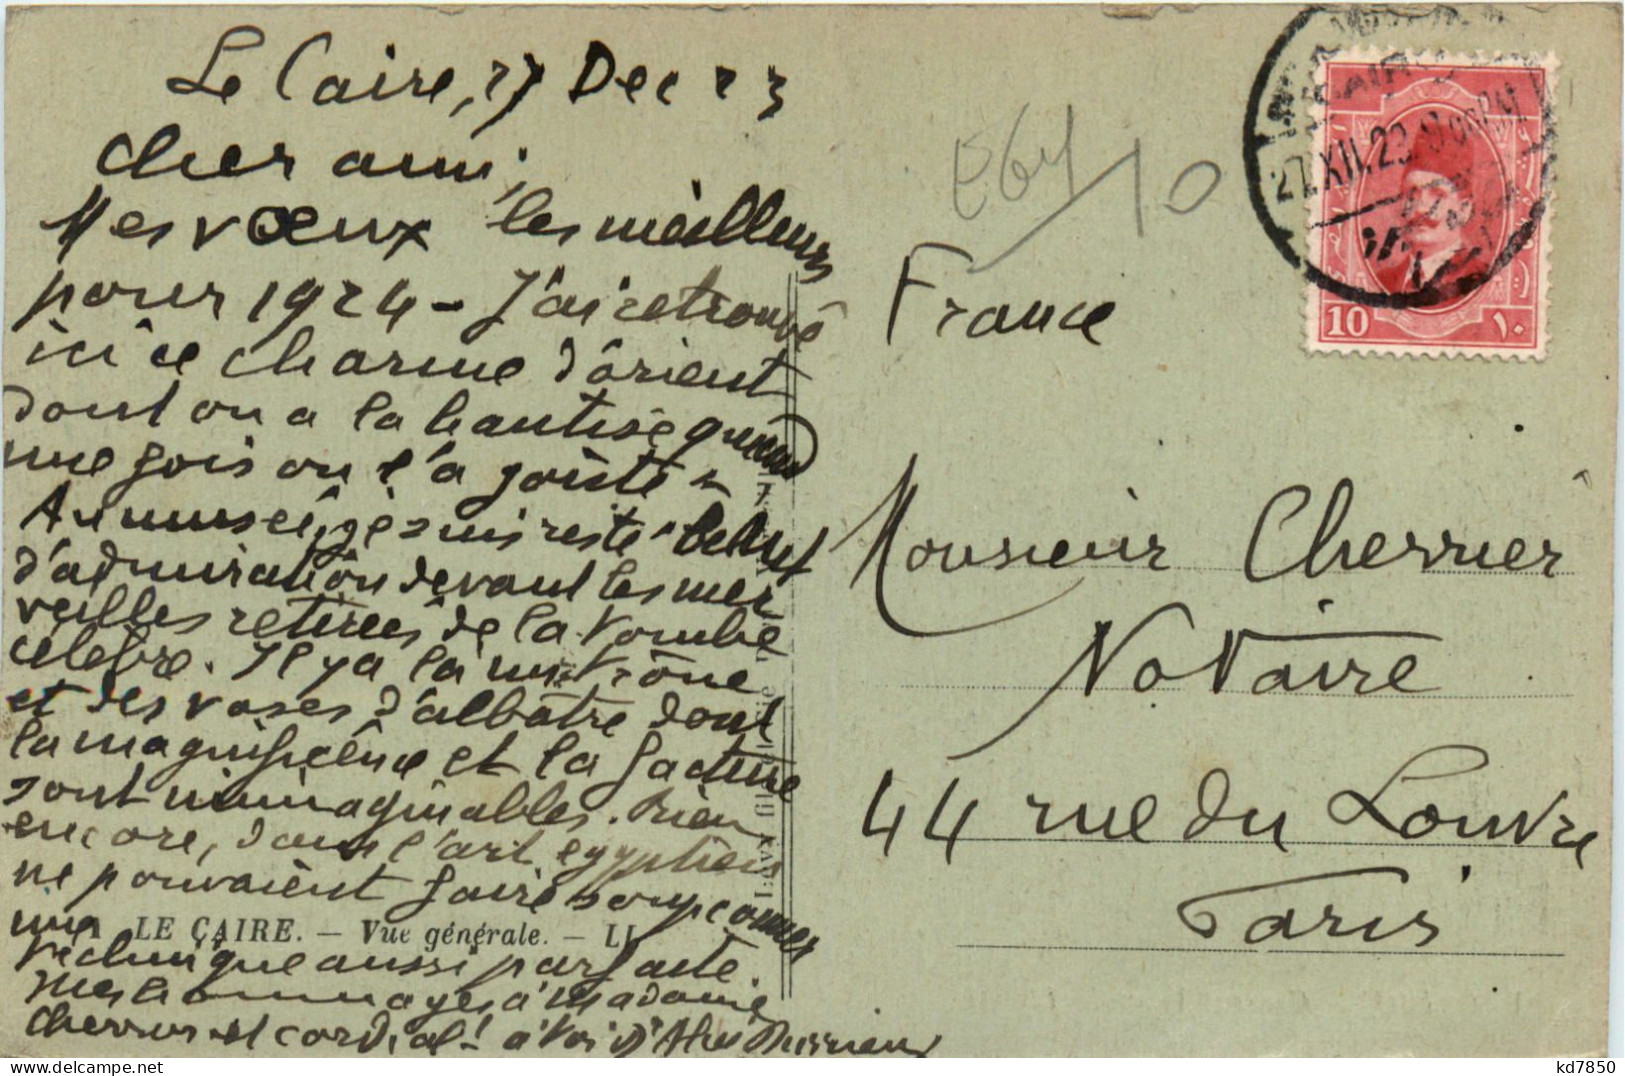 Le Caire, 27 Dec 23
cher ami,
Mes vœux les meilleurs
pour 1924 - J'ai retrouvé
ici ce charme d'orient
dont on a la hantise quand
une fois on l'a goûté -
Au musée, je suis resté
d'admiration devant les mer
veilles retirées de la tombe
célèbre. Il y a là un trône
et des vases d'albâtre dont
la magnificence et la facture
sont inimaginables. Rien
encore, dans l'art egyptien
ne pouvaient faire soupçonner
une
LE CAIRE. — Vue générale. — LL
technique aussi parfaite.
mes hommages à madame
cherrier et cordial! à toi
Egy/10
France
27.XII.23
10
١٠
Monsieur Cherrier
Notaire
44 rue du Louvre
Paris
kd7850